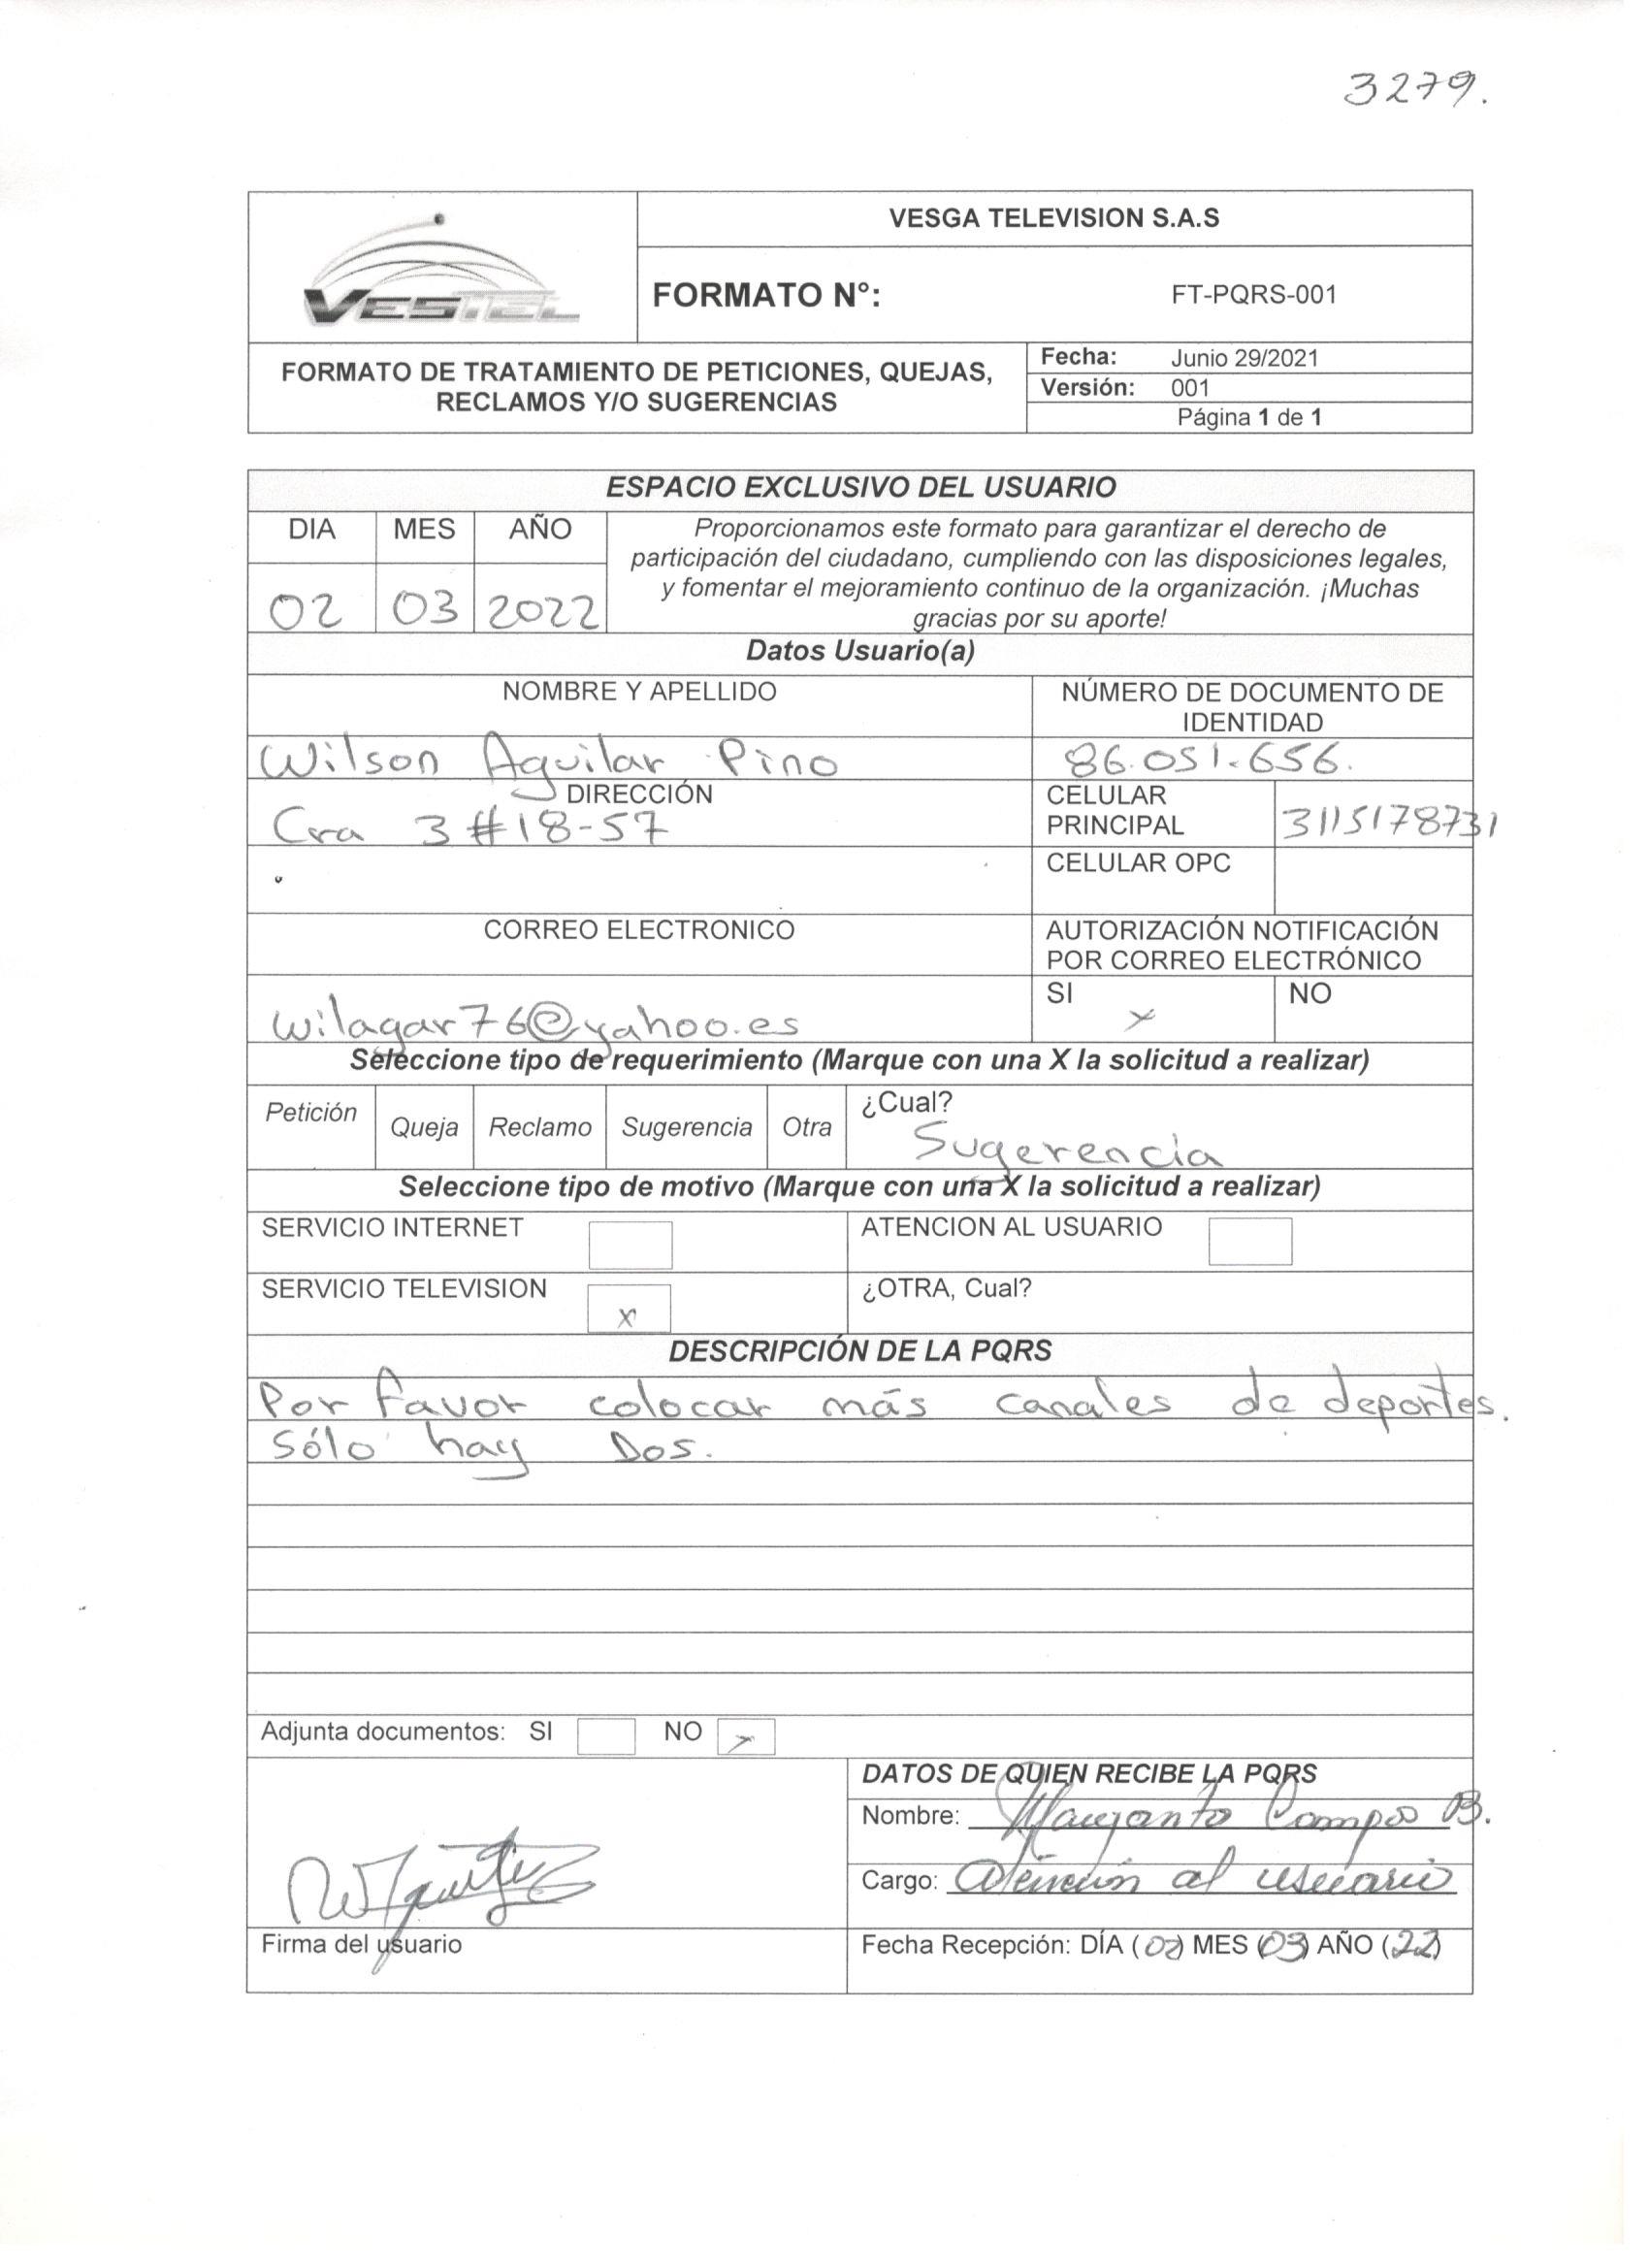 3279.
VESTEL
VESGA TELEVISION S.A.S
FORMATO N°: FT-PQRS-001
FORMATO DE TRATAMIENTO DE PETICIONES, QUEJAS,
RECLAMOS Y/O SUGERENCIAS
Fecha: Junio 29/2021
Versión: 001
Página 1 de 1
ESPACIO EXCLUSIVO DEL USUARIO
DIA MES AÑO
02 03 2022
Proporcionamos este formato para garantizar el derecho de
participación del ciudadano, cumpliendo con las disposiciones legales,
y fomentar el mejoramiento continuo de la organización. ¡Muchas
gracias por su aporte!
Datos Usuario(a)
NOMBRE Y APELLIDO
NÚMERO DE DOCUMENTO DE
IDENTIDAD
Wilson Aguilar Pino
86.051.656.
DIRECCIÓN
Cra 3 #18-57
CELULAR
PRINCIPAL
3115178731
CELULAR OPC
CORREO ELECTRONICO
AUTORIZACIÓN NOTIFICACIÓN
POR CORREO ELECTRÓNICO
wilagar76@yahoo.es
SI X NO
Seleccione tipo de requerimiento (Marque con una X la solicitud a realizar)
Petición Queja Reclamo Sugerencia Otra ¿Cual?
Sugerencia
Seleccione tipo de motivo (Marque con una X la solicitud a realizar)
SERVICIO INTERNET ATENCION AL USUARIO
SERVICIO TELEVISION X ¿OTRA, Cual?
DESCRIPCIÓN DE LA PQRS
Por favor colocar más canales de deportes.
Sólo hay Dos.
Adjunta documentos: SI NO X
DATOS DE QUIEN RECIBE LA PQRS
Nombre: Campos B.
Cargo: Atención al usuario
Firma del usuario
Fecha Recepción: DÍA (02) MES (03) AÑO (22)